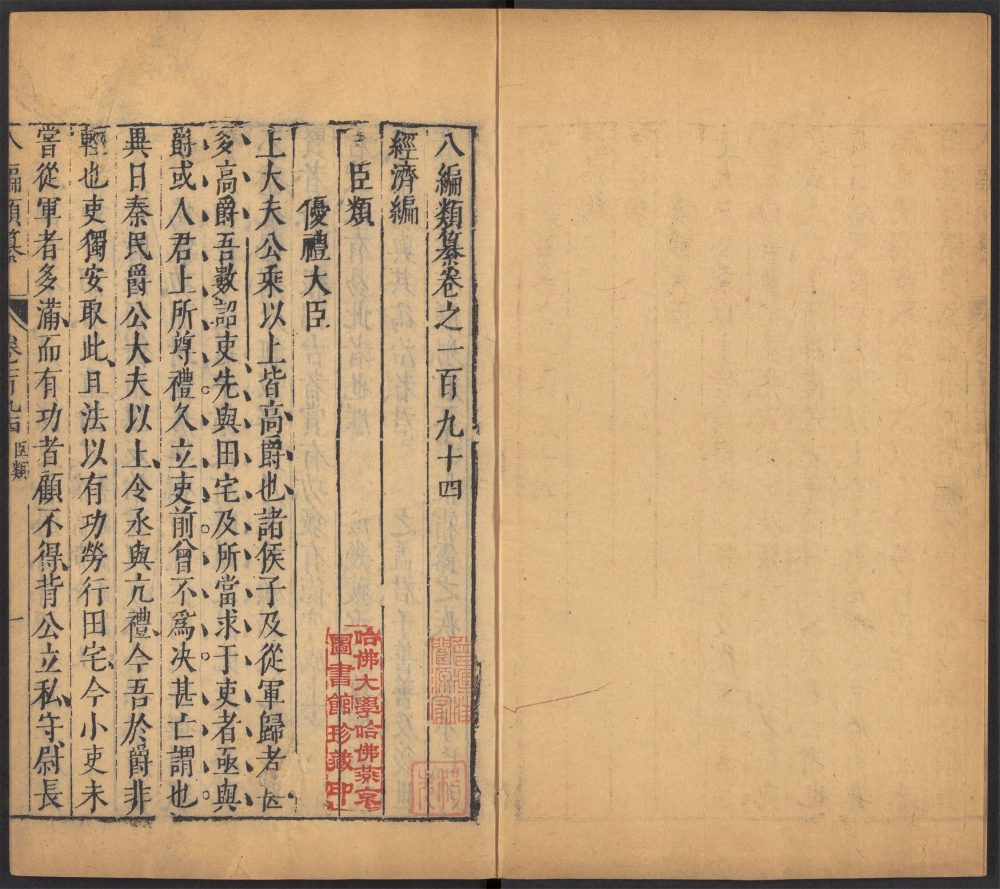 八編類纂卷之一百九十四
經濟編
臣類
優禮大臣
七大夫公乘以上皆高爵也諸侯子及從軍歸者甚
多高爵吾數詔吏先與田宅及所當求于吏者亟與
爵或人君上所尊禮久立吏前曾不爲决甚亡謂也
異日秦民爵公大夫以上令丞與亢禮今吾於爵非
輕也吏獨安取此且法以有功勞行田宅今小吏未
嘗從軍者多滿而有功者顧不得背公立私守尉長
八編類纂 卷一百九十四 臣類 一
哈佛大學哈佛燕京
圖書館珍藏印